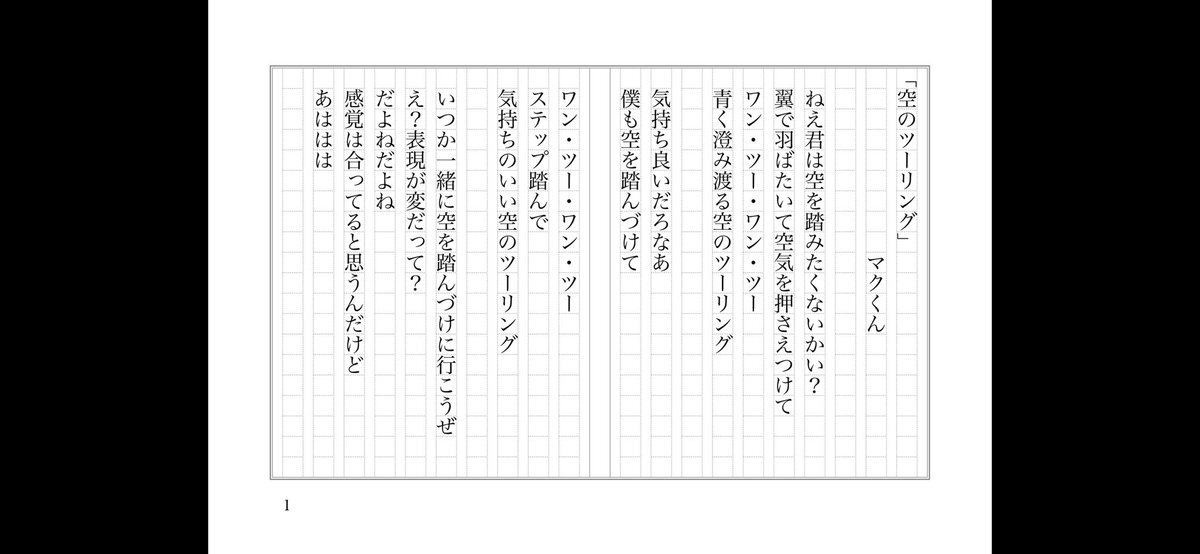 「空のツーリング」
マクくん
ねえ君は空を踏みたくないかい？
翼で羽ばたいて空気を押さえつけて
ワン・ツー・ワン・ツー
青く澄み渡る空のツーリング
気持ち良いだろなあ
僕も空を踏んづけて
ワン・ツー・ワン・ツー
ステップ踏んで
気持ちのいい空のツーリング
いつか一緒に空を踏んづけに行こうぜ
え？表現が変だって？
だよねだよね
感覚は合ってると思うんだけど
あははは
1